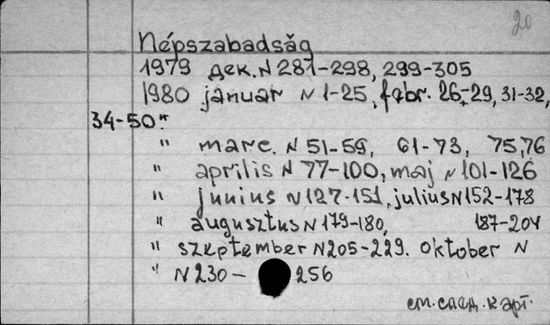 20
Népszabadság
1979 дек. N 281-298, 299-305
1980 januar N 1-25, febr. 26-29, 31-32,
34-50."
" marc. N 51-59, 61-73, 75,76
" aprilis N 77-100, maj N 101-126
" junius N 127-151, julius N 152-178
" augusztus N 179-180, 187-204
" szeptember N 205-229. oktober N
" N 230- 256
см. след. карт.